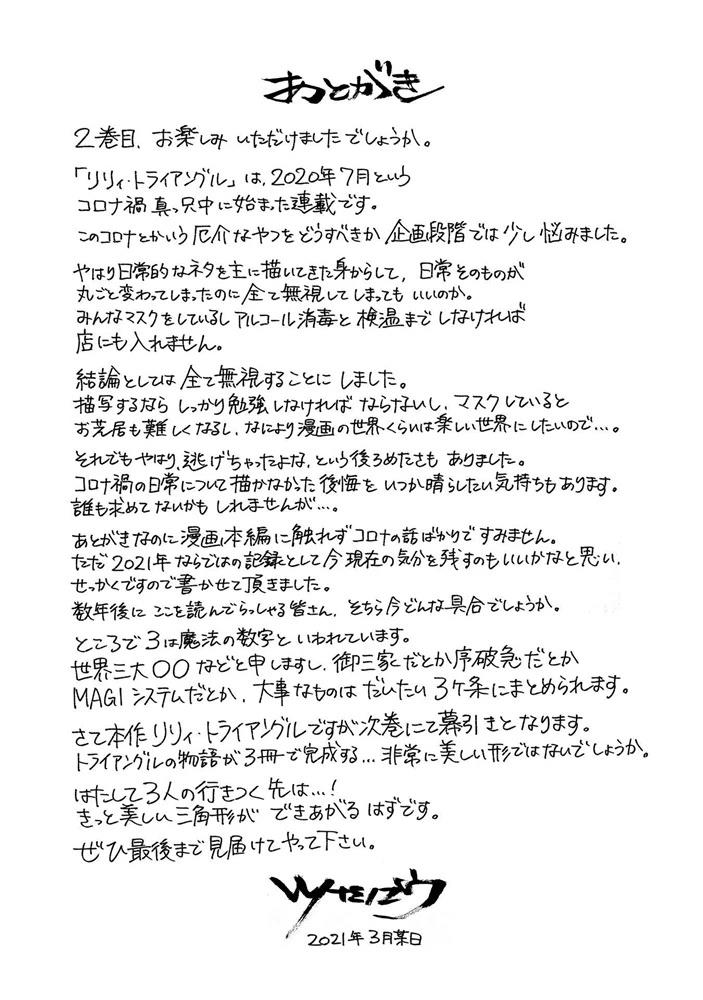 あとがき
2巻目、お楽しみ いただけましたでしょうか。
「リリィ・トライアングル」は、2020年7月という
コロナ禍 真っ只中に始まった連載です。
このコロナとかいう 厄介なやつを どうすべきか 企画段階では少し悩みました。
やはり日常的なネタを主に描いてきた身からして、日常そのものが
丸ごと変わってしまったのに 全て無視してしまっても いいのか。
みんなマスクをしているし アルコール消毒と 検温まで しなければ
店にも入れません。
結論としては 全て無視することに しました。
描写するなら しっかり勉強しなければ ならないし、マスクしていると
お芝居も難しくなるし、なにより漫画の世界くらいは楽しい世界にしたいので…。
それでもやはり、逃げちゃったよな、という後ろめたさも ありました。
コロナ禍の日常について描かなかった後悔を いつか晴らしたい気持ちもあります。
誰も求めてないかも しれませんが…。
あとがきなのに漫画本編に触れずコロナの話ばかりですみません。
ただ 2021年ならではの記録として今現在の気分を残すのもいいかなと思い、
せっかくですので書かせて頂きました。
数年後に ここを読んでらっしゃる皆さん、そちら今どんな具合でしょうか。
ところで3は魔法の数字と いわれています。
世界三大〇〇などと申しますし、御三家だとか序破急だとか
MAGIシステムだとか、大事なものは だいたい 3ケ条にまとめられます。
さて本作リリィ・トライアングルですが次巻にて幕引きとなります。
トライアングルの物語が3冊で完成する…非常に美しい形ではないでしょうか。
はたして3人の行きつく先は…!
きっと美しい三角形が できあがる はずです。
ぜひ最後まで見届けてやって下さい。
2021年3月某日